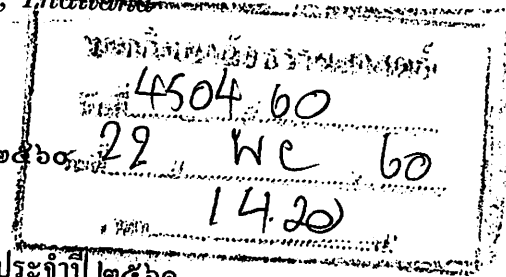 Thailand
มหาวิทยาลัยธรรมศาสตร์
4504 60
๒๕๖๐
22 พค 60
14.20
ประจำปี ๒๕๖๑